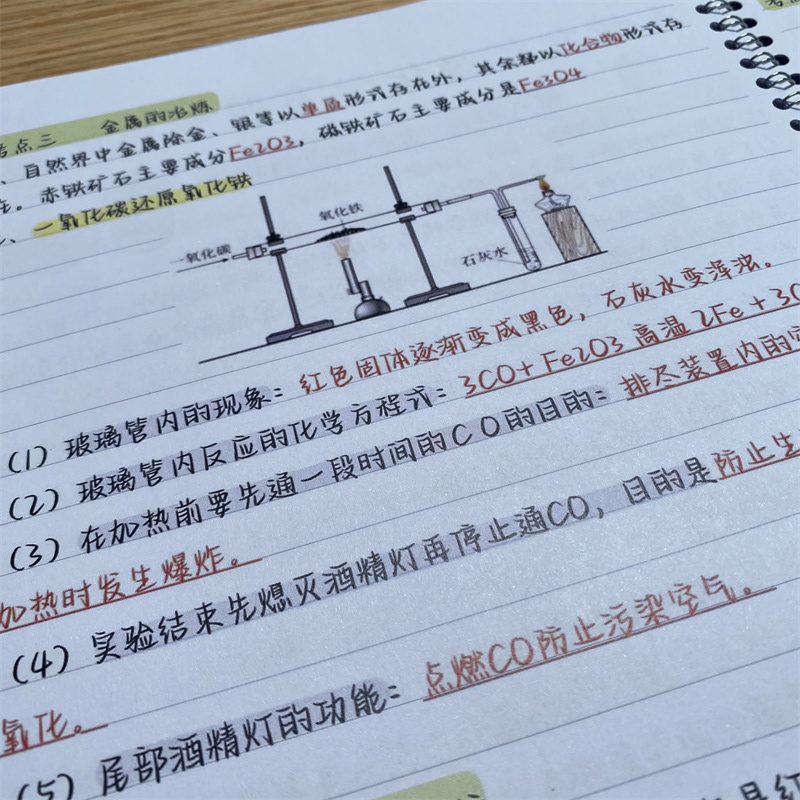 考点三 金属的冶炼
、自然界中金属除金、银等以单质形式存在外，其余都以化合物形式存
在。赤铁矿石主要成分Fe2O3，磁铁矿石主要成分是Fe3O4
、一氧化碳还原氧化铁
氧化铁
一氧化碳
石灰水
(1) 玻璃管内的现象：红色固体逐渐变成黑色，石灰水变浑浊。
(2) 玻璃管内反应的化学方程式：3CO+Fe2O3 高温 2Fe+3C
(3) 在加热前要先通一段时间的CO的目的：排尽装置内的
加热时发生爆炸。
(4) 实验结束先熄灭酒精灯再停止通CO，目的是防止生
氧化。
(5) 尾部酒精灯的功能：点燃CO防止污染空气。